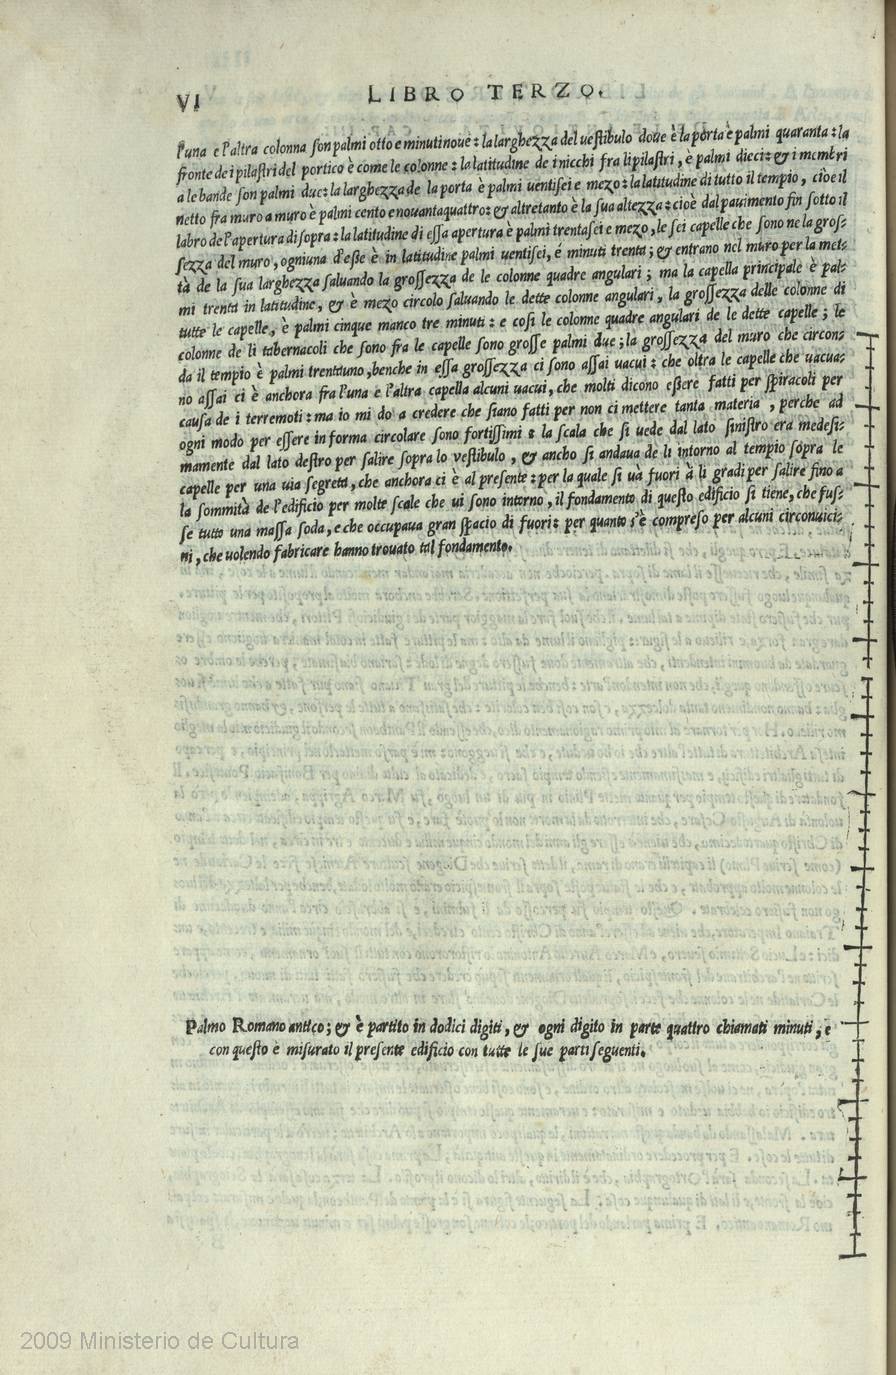 VI
LIBRO TERZO.
l'una e l'altra colonna ſon palmi otto e minuti noue: la larghezza del ueſtibulo doue è la porta è palmi quaranta: la
fronte de i pilaſtri del portico è come le colonne: la latitudine de i nicchi fra li pilaſtri, è palmi dieci: & i membri
a le bande ſon palmi due: la larghezza de la porta è palmi uentiſei e mezo: la latitudine di tutto il tempio, cioè il
netto fra muro a muro è palmi cento e nouantaquattro: & altretanto è la ſua altezza: cioè dal pauimento fin ſotto il
labro de l'apertura di ſopra: la latitudine di eſſa apertura è palmi trentaſei e mezo, le ſei capelle che ſono ne la groſ-
ſezza del muro, ogniuna d'eſſe è in latitudine palmi uentiſei, é minuti trenta; & entrano nel muro per la met-
tà de la ſua larghezza ſaluando la groſſezza de le colonne quadre angulari; ma la capella principale è pal-
mi trenta in latitudine, & è mezo circolo ſaluando le dette colonne angulari, la groſſezza delle colonne di
tutte le capelle, è palmi cinque manco tre minuti: e coſi le colonne quadre angulari de le dette capelle; le
colonne de li tabernacoli che ſono fra le capelle ſono groſſe palmi due; la groſſezza del muro che circon-
da il tempio è palmi trentuno, benche in eſſa groſſezza ci ſono aſſai uacui: che oltra le capelle che uacua-
no aſſai ci è anchora fra l'una e l'altra capella alcuni uacui, che molti dicono eſſere fatti per ſpiracoli per
cauſa de i terremoti: ma io mi do a credere che ſiano fatti per non ci mettere tanta materia, perche ad
ogni modo per eſſere in forma circolare ſono fortiſſimi: la ſcala che ſi uede dal lato ſiniſtro era medeſi-
mamente dal lato deſtro per ſalire ſopra lo veſtibulo, & ancho ſi andaua de li intorno al tempio ſopra le
capelle per una uia ſegreta, che anchora ci è al preſente: per la quale ſi uà fuori à li gradi per ſalire fino a
la ſommità de l'edificio per molte ſcale che ui ſono intorno, il fondamento di queſto edificio ſi tiene, che fuſ-
ſe tutto una maſſa ſoda, e che occupaua gran ſpacio di fuori: per quanto s'è compreſo per alcuni circonuici-
ni, che uolendo fabricare hanno trouato tal fondamento.
Palmo Romano antico; & è partito in dodici digiti, & ogni digito in parte quattro chiamati minuti, e
con queſto è miſurato il preſente edificio con tutte le ſue parti ſeguenti.
2009 Ministerio de Cultura